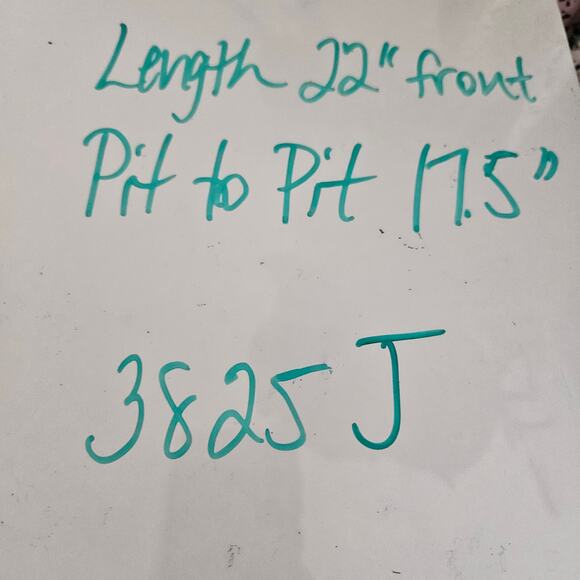 Length 22" front
Pit to Pit 17.5"
3825 J